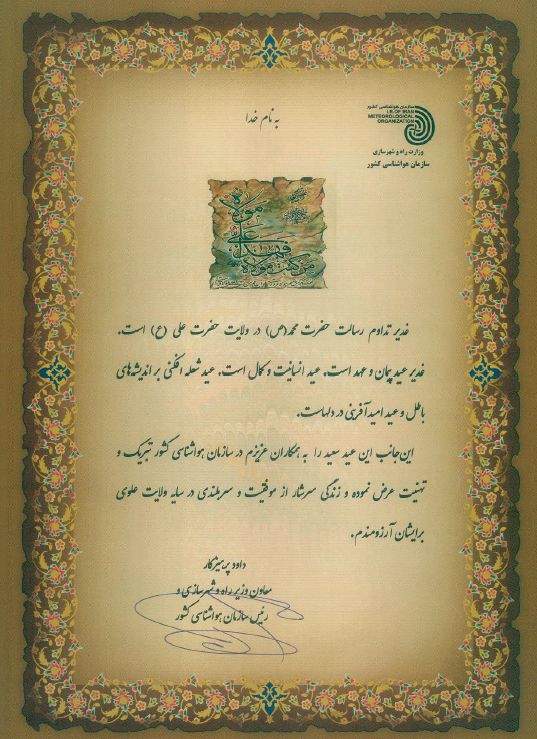 به نام خدا
سازمان هواشناسی کشور
I.R.OF IRAN
METEOROLOGICAL
ORGANIZATION
وزارت راه و شهرسازی
سازمان هواشناسی کشور
من کنت مولاه
فهذا علی
مولاه
غدیر تداوم رسالت حضرت محمد(ص) در ولایت حضرت علی (ع) است.
غدیر عید پیمان و عهد است، عید انسانیت و کمال است، عید شعله افکنی بر اندیشه‌های
باطل و عید امیدآفرینی در دلهاست.
این‌جانب این عید سعید را به همکاران عزیزم در سازمان هواشناسی کشور تبریک و
تهنیت عرض نموده و زندگی سرشار از موفقیت و سربلندی در سایه ولایت علوی
برایشان آرزومندم.
داود پرهیزکار
معاون وزیر راه و شهرسازی و
رئیس سازمان هواشناسی کشور